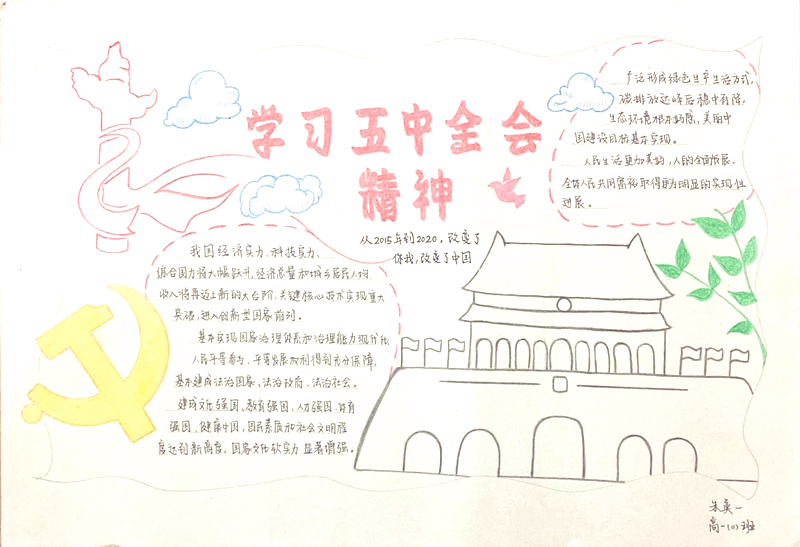 学习五中全会
精神
从2015年到2020，改变了
你我，改变了中国
我国经济实力、科技实力、
综合国力将大幅跃升，经济质量和城乡居民人均
收入将再迈上新的大台阶，关键核心技术实现重大
突破，进入创新型国家前列。
基本实现国家治理体系和治理能力现代化
人民平等参与、平等发展权利得到充分保障，
基本建成法治国家、法治政府、法治社会。
建成文化强国、教育强国、人才强国、体育
强国、健康中国，国民素质和社会文明程
度达到新高度，国家文化软实力显著增强。
广泛形成绿色生产生活方式，
碳排放达峰后稳中有降，
生态环境根本好转，美丽中
国建设目标基本实现。
人民生活更加美好，人的全面发展、
全体人民共同富裕取得更为明显的实质性
进展。
朱奕一
高一(11)班